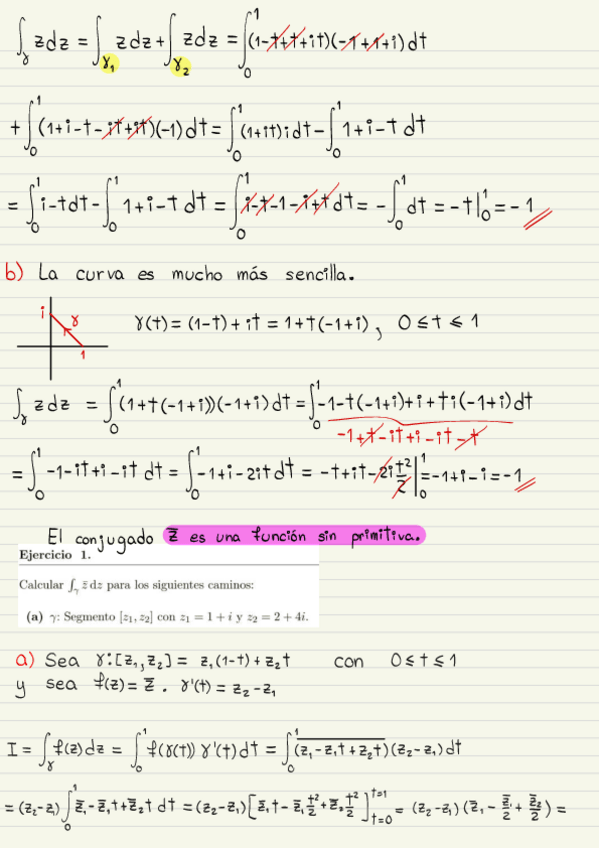 ∫_γ zdz = ∫_γ₁ zdz + ∫_γ₂ zdz = ∫₀¹ (1-t+t+it)(-1+1+i)dt
+ ∫₀¹ (1+i-t-it+it)(-1)dt = ∫₀¹ (1+it)idt - ∫₀¹ 1+i-t dt
= ∫₀¹ i-tdt - ∫₀¹ 1+i-t dt = ∫₀¹ i-t-1-i+t dt = -∫₀¹ dt = -t|₀¹ = -1
b) La curva es mucho más sencilla.
i γ 1
γ(t) = (1-t)+it = 1+t(-1+i), 0≤t≤1
∫_γ zdz = ∫₀¹ (1+t(-1+i))(-1+i)dt = ∫₀¹ -1-t(-1+i)+i+ti(-1+i)dt
-1+t-it+i-it-t
= ∫₀¹ -1-it+i-it dt = ∫₀¹ -1+i-2it dt = -t+it-2i t²/2 |₀¹ = -1+i-i = -1
El conjugado z̄ es una función sin primitiva.
Ejercicio 1.
Calcular ∫_γ z̄ dz para los siguientes caminos:
(a) γ: Segmento [z₁, z₂] con z₁ = 1 + i y z₂ = 2 + 4i.
a) Sea γ:[z₁,z₂] = z₁(1-t)+z₂t con 0≤t≤1
y sea f(z)=z̄. γ'(t) = z₂-z₁
I = ∫_γ f(z)dz = ∫₀¹ f(γ(t))γ'(t)dt = ∫₀¹ \overline{(z₁-z₁t+z₂t)}(z₂-z₁)dt
= (z₂-z₁)∫₀¹ z̄₁-z̄₁t+z̄₂t dt = (z₂-z₁)[z̄₁t-z̄₁ t²/2+z̄₂ t²/2]_{t=0}^{t=1} = (z₂-z₁)(z̄₁ - z̄₁/2 + z̄₂/2) =